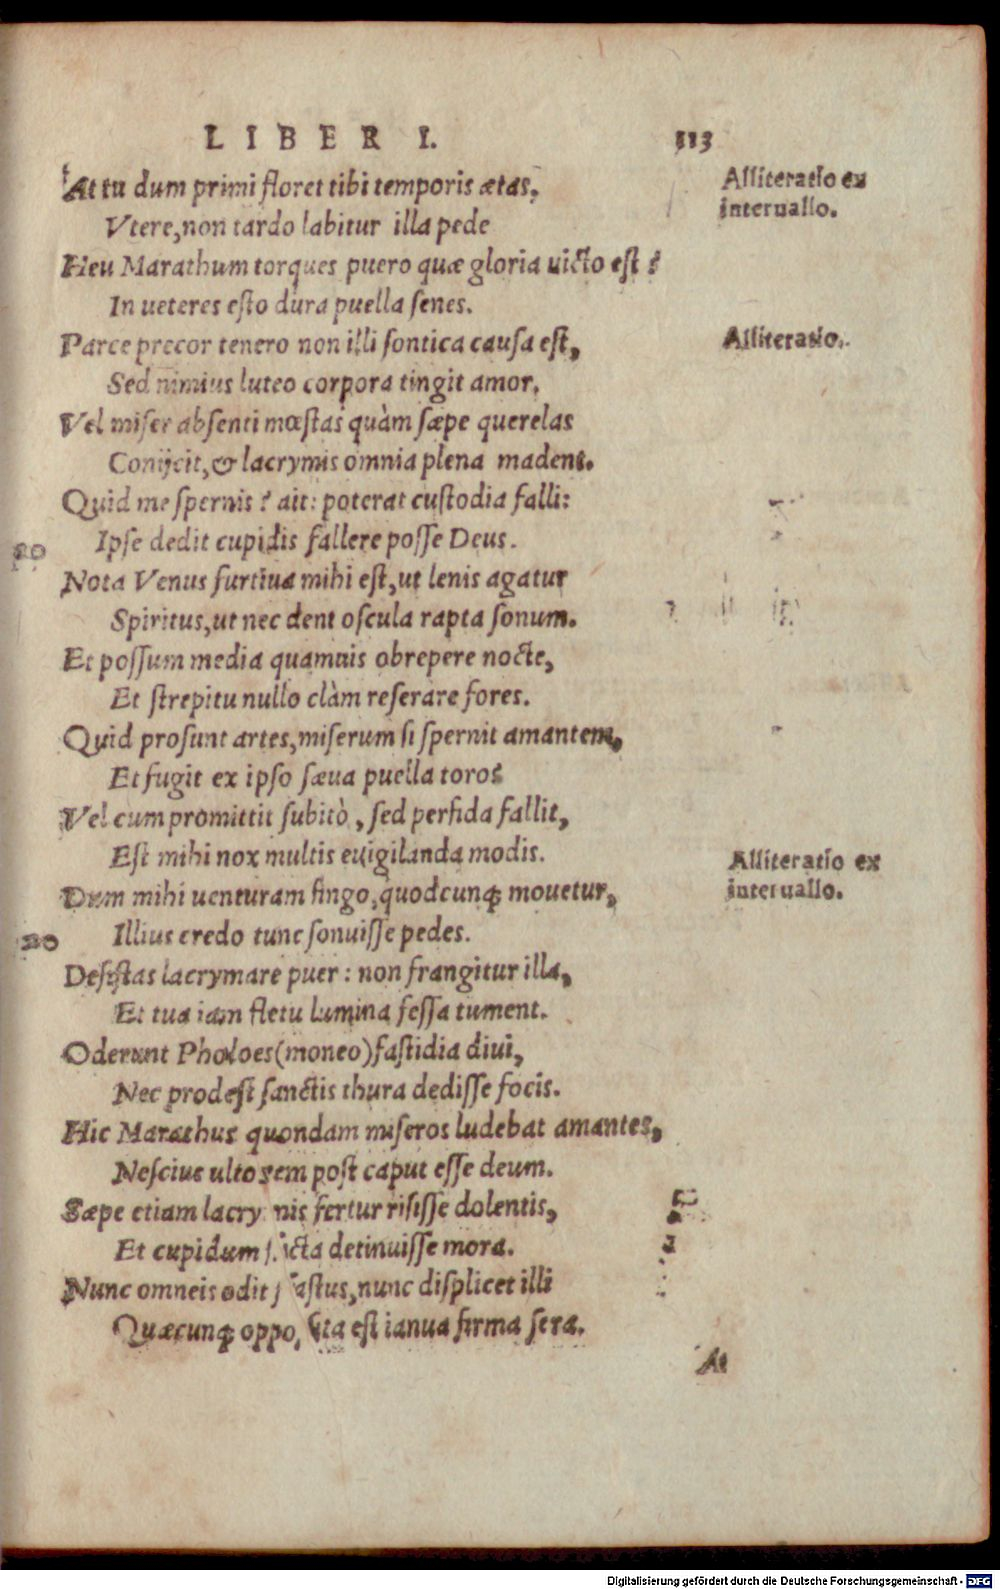 LIBER I. 113
At tu dum primi floret tibi temporis ætas,
Vtere, non tardo labitur illa pede
Heu Marathum torques puero quæ gloria uicto est?
In ueteres esto dura puella senes.
Parce precor tenero non illi sontica causa est,
Sed nimius luteo corpora tingit amor,
Vel miser absenti mœstas quàm sæpe querelas
Conijcit, & lacrymis omnia plena madent.
Quid me spernis? ait: poterat custodia falli:
Ipse dedit cupidis fallere posse Deus.
Nota Venus furtiua mihi est, ut lenis agatur
Spiritus, ut nec dent oscula rapta sonum.
Et possum media quamuis obrepere nocte,
Et strepitu nullo clàm reserare fores.
Quid prosunt artes, miserum si spernit amantem,
Et fugit ex ipso sæua puella toro?
Vel cum promittit subitò, sed perfida fallit,
Est mihi nox multis euigilanda modis.
Dum mihi uenturam fingo, quodcunq; mouetur,
Illius credo tunc sonuisse pedes.
Desistas lacrymare puer: non frangitur illa,
Et tua iam fletu lumina fessa tument.
Oderunt Pholoes (moneo) fastidia diui,
Nec prodest sanctis thura dedisse focis.
Hic Marathus quondam miseros ludebat amantes,
Nescius ultorem post caput esse deum.
Sæpe etiam lacry nis fertur risisse dolentis,
Et cupidum ficta detinuisse mora.
Nunc omneis odit fastus, nunc displicet illi
Quæcunq; opposita est ianua firma sera.
At
Alliteratio ex
interuallo.
Alliteratio.
Alliteratio ex
interuallo.
20
Digitalisierung gefördert durch die Deutsche Forschungsgemeinschaft - DFG